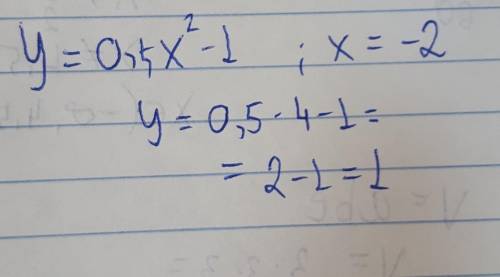 y = 0,5x² - 1 ; x = -2
y = 0,5 · 4 - 1 =
= 2 - 1 = 1